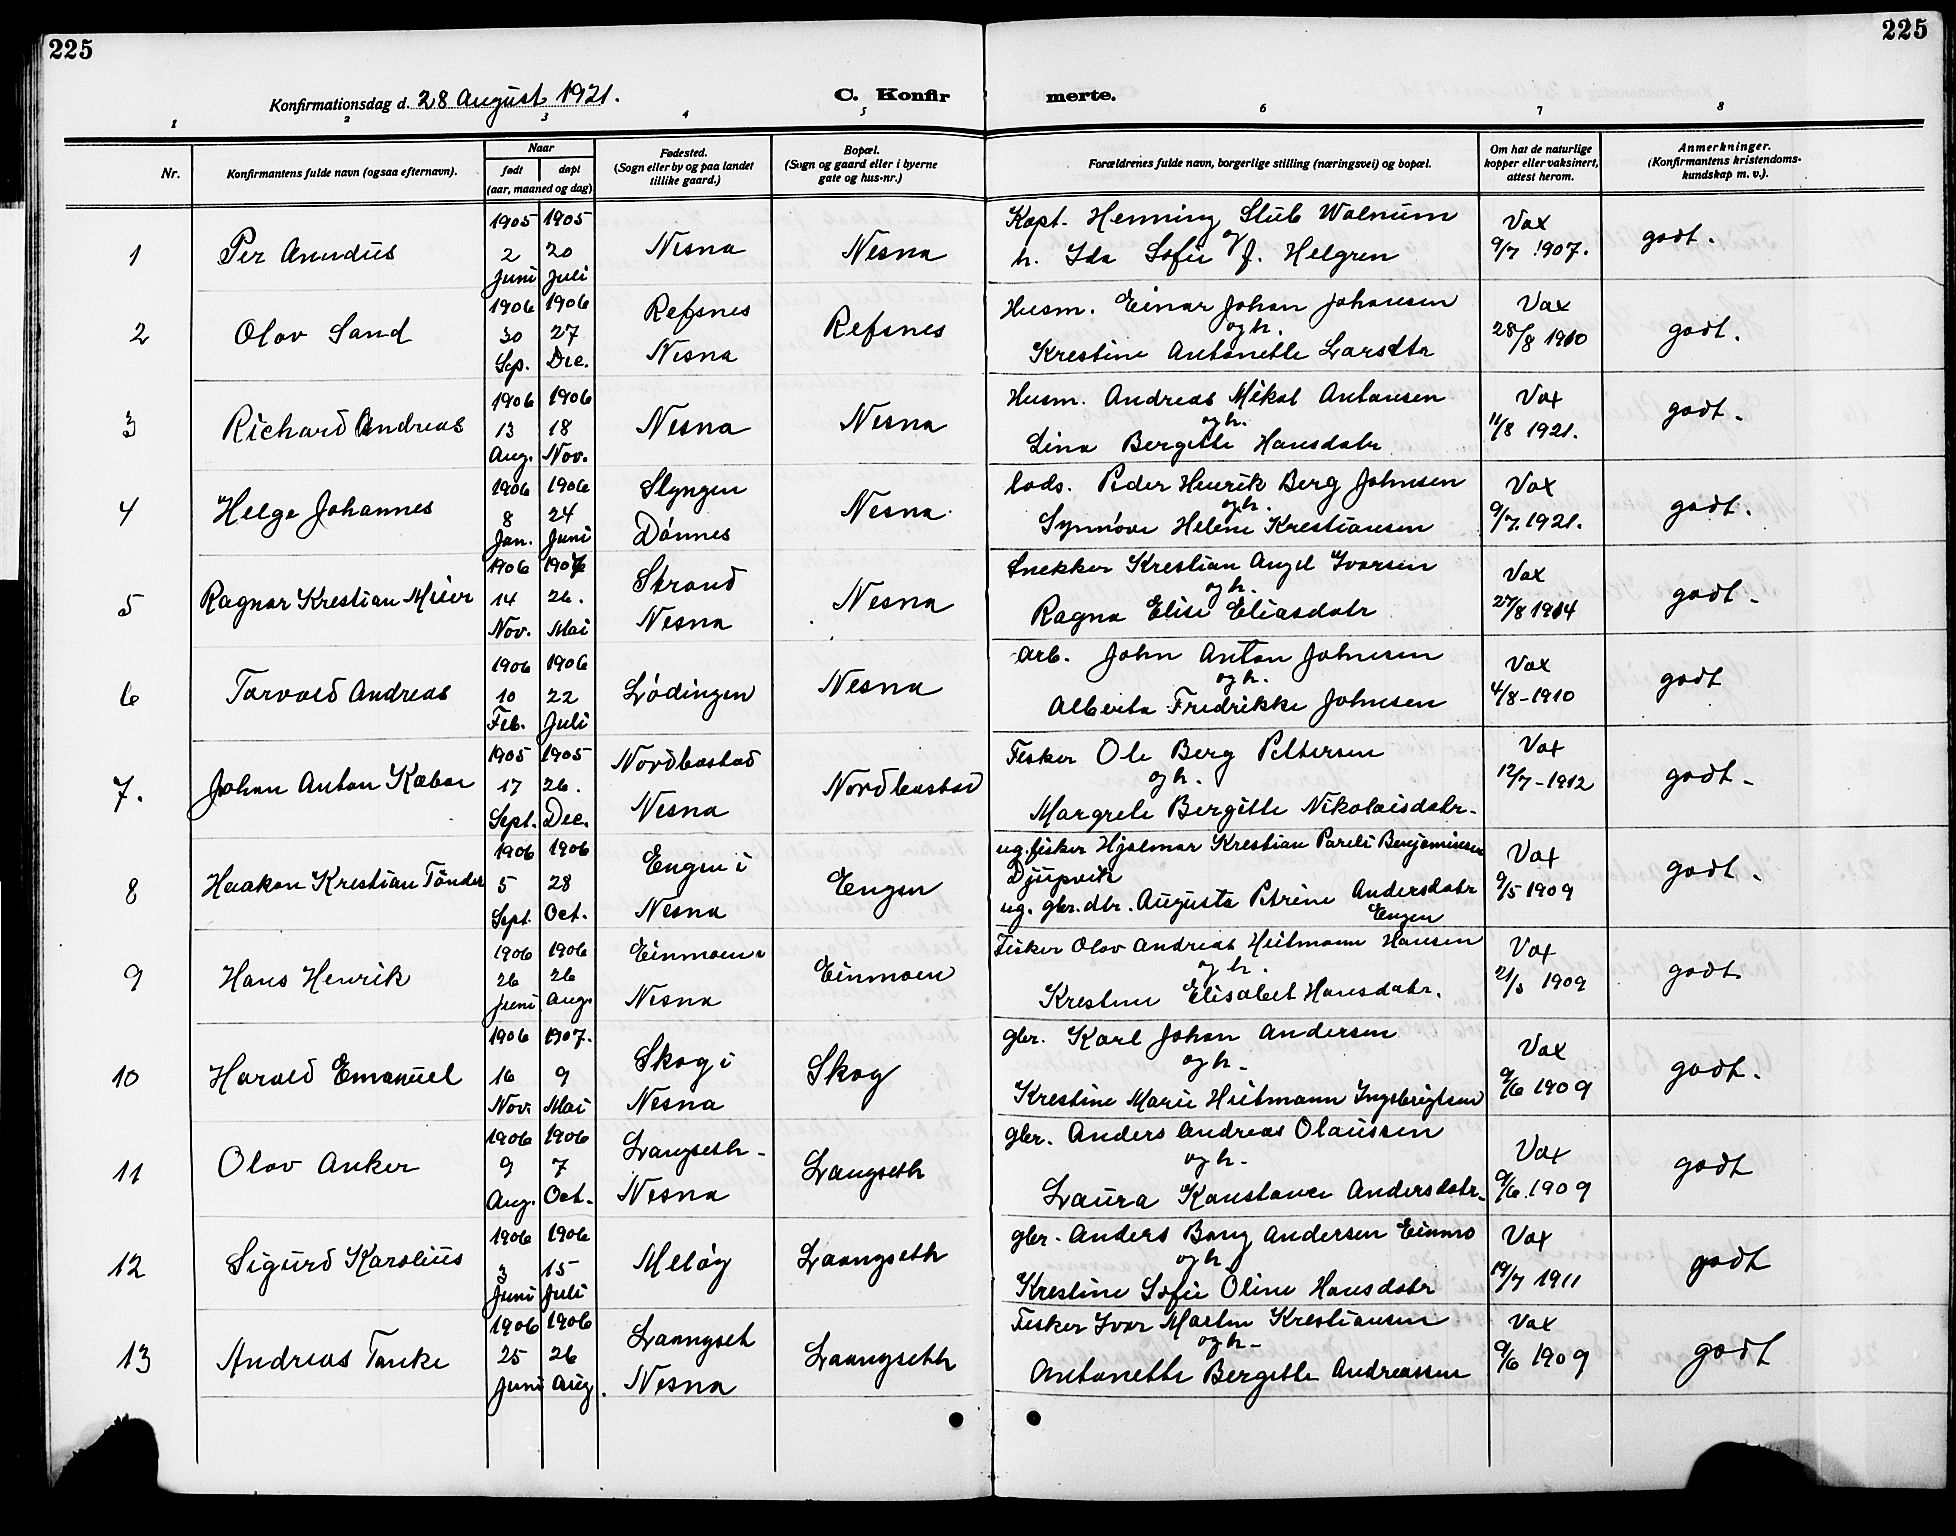 225
225
Konfirmationsdag d. 28 August 1921.
C. Konfir
merte.
1 2 3 4 5 6 7 8
Nr.
Konfirmantens fulde navn (ogsaa efternavn).
Naar
født døpt
(aar, maaned og dag)
Fødested.
(Sogn eller by og paa landet
tillike gaard.)
Bopæl.
(Sogn og gaard eller i byerne
gate og hus-nr.)
Forældrenes fulde navn, borgerlige stilling (næringsvei) og bopæl.
Om hat de naturlige
kopper eller vaksinert,
attest herom.
Anmerkninger.
(Konfirmantens kristendoms-
kundskap m. v.).
1905 1905 Kapt. Henning Stub Walnum Vax
1 Per Amndus 2 20 Nesna Nesna og godt.
Juni Juli h. Ida Sofie J. Helgren 9/7 1907.
1906 1906 Refsnes Husm. Einar Johan Johansen Vax
2 Olav Sand 30 27 Refsnes og h. godt.
Sep. Dec. Nesna Krestine Antonette Larsdtr 28/8 1910
1906 1906 Husm. Andreas Mikal Antonsen Vax
3 Richard Andreas 13 18 Nesna Nesna og h. godt.
Aug. Nov. Lina Bergitte Hansdatr 11/8 1921.
1906 1906 Slyngen lods. Peder Henrik Berg Johnsen Vax
4 Helge Johannes 8 24 Nesna og h. godt.
Jan. Juni Dønnes Synnøve Helene Krestiansen 9/7.1921.
1906 1907 Strand Snekker Krestian Angel Ivarsen Vax
5 Ragnar Krestian Meier 14 26. Nesna og h. godt.
Nov. Mai Nesna Ragna Elise Eliasdatr 27/8 1914
1906 1906 Arb. John Anton Johnsen Vax
6 Torvald Andreas 10 22 Lødingen Nesna og h. godt
Feb. Juli Alberta Fredrikke Johnsen 4/8-1910
1905 1905 Nordbastad Fisker Ole Berg Pettersen Vax
7. Johan Anton Kabar 17 26. Nordbastad og h. 12/7-1912 godt.
Sept. Dec. Nesna Margrete Bergitte Nikolaisdatr.
1906 1906 Engen i ug. fisker Hjalmar Krestian Pareli Benjaminsen Vax
8 Haakon Krestian Tønder 5 28 Engen Djupvik godt.
Sept. Oct. Nesna ug. gbr. dtr. Augusta Petrine Andersdatr 9/5 1909
Engen
1906 1906 Einmoen i Fisker Olav Andreas Heitmann Hansen Vax
9 Hans Henrik 26 26 Einmoen og h. 21/5 1909 godt
Juni Aug. Nesna Krestine Elisabet Hansdatr.
1906 1907. Skog i gbr. Karl Johan Andersen Vax
10 Harald Emanuel 16 9 Skog og h. godt.
Nov. Mai Nesna Krestine Marie Heitmann Ingebrigtsen 9/6 1909
1906 1906 Langseth gbr. Anders Andreas Olaussen Vax
11 Olav Anker 9 7 Langseth og h. godt
Aug. Oct. Nesna Laura Konstance Andersdatr. 9/6.1909
1906 1906 gbr. Anders Bang Andersen Einmo Vax
12 Sigurd Karolius 3 15 Meløy Laangseth og h. godt
Juni Juli Krestine Sofie Oline Hansdatr 19/7 1911
1906 1906 Laangset Fisker Ivar Martin Krestiansen Vax
13 Andreas Tanke 25 26 Laangseth og h. godt
Juni Aug. Nesna Antonette Bergitte Andreassen 9/6 1909